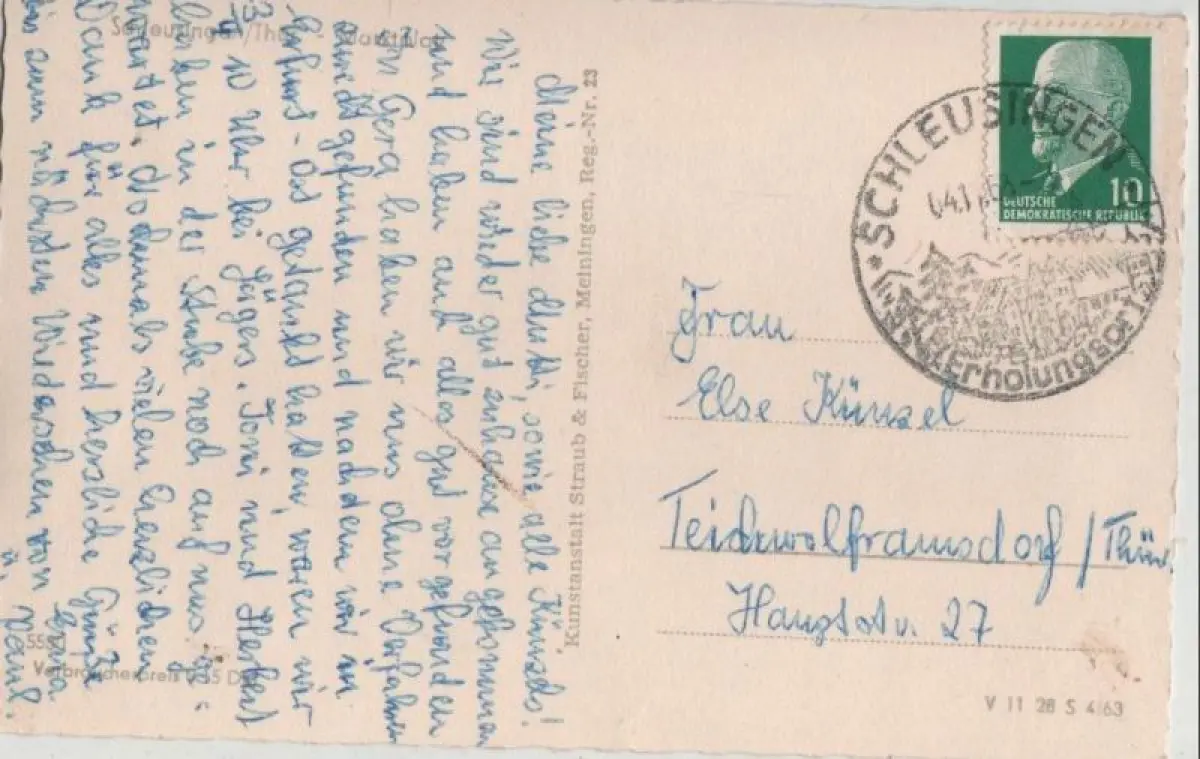 Schleusingen/Thür. Marktplatz
Meine liebe Mutti, sowie alle Künzels!
Wir sind wieder gut zuhause angekommen
und haben auch alles gut vorgefunden
In Gera haben wir uns ohne Verfahren
zurechtgefunden und nachdem wir in
Erfurt getankt hatten, waren wir
3/4 10 Uhr bei Jägers. Toni und Herbert
haben in der Stube noch auf uns ge-
wartet. Nochmals vielen herzlichen
Dank für alles und herzliche Grüße
bis zum nächsten Wiedersehen von
Eva
u. Paul.
Verbraucherpreis 0,15 DM
Kunstanstalt Straub & Fischer, Meiningen, Reg.-Nr. 23
10
DEUTSCHE
DEMOKRATISCHE REPUBLIK
SCHLEUSINGEN
Erholungsort
Frau
Else Künzel
Teichwolframsdorf/Thür.
Hauptstr. 27
V 11 28 S 4/63